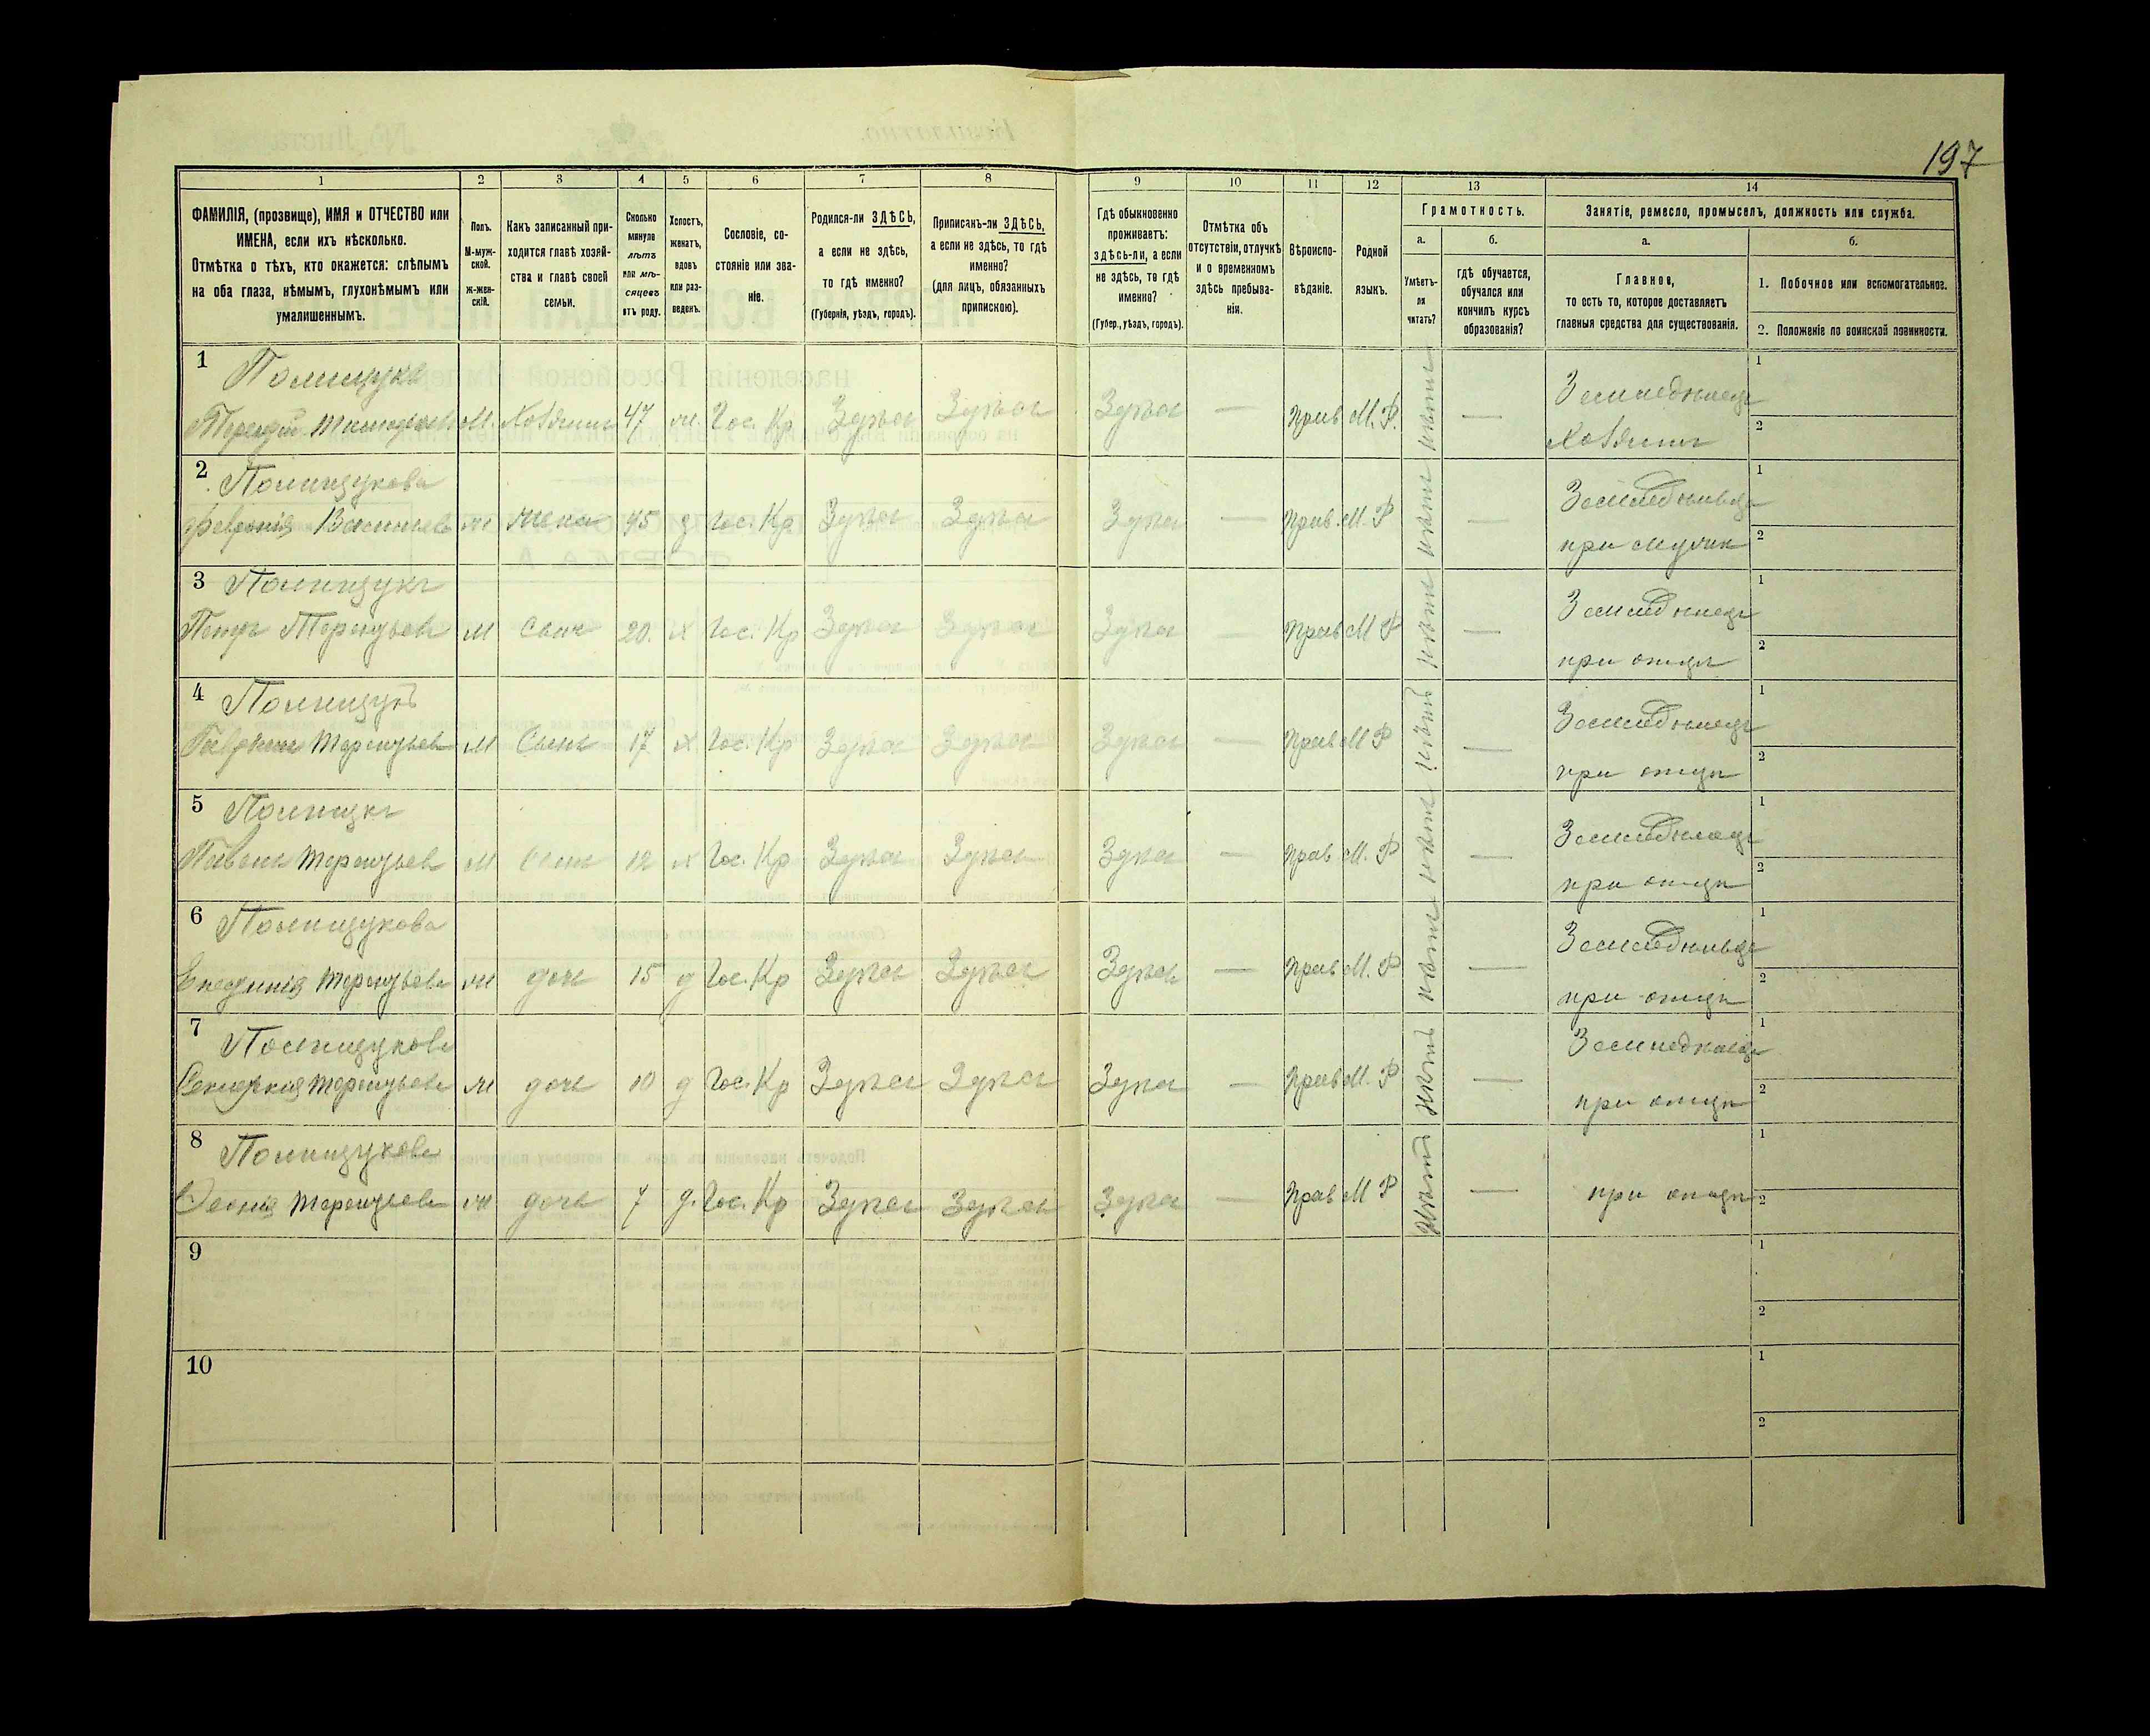 197
1 2 3 4 5 6 7 8 9 10 11 12 13 14
ФАМИЛІЯ, (прозвище), ИМЯ и ОТЧЕСТВО или
ИМЕНА, если ихъ нѣсколько.
Отмѣтка о тѣхъ, кто окажется: слѣпымъ
на оба глаза, нѣмымъ, глухонѣмымъ или
умалишеннымъ.
Полъ.
М-муж-
ской.
ж-жен-
скій.
Какъ записанный при-
ходится главѣ хозяй-
ства и главѣ своей
семьи.
Сколько
минуло
лѣтъ
или мѣ-
сяцевъ
отъ роду.
Холостъ,
женатъ,
вдовъ
или раз-
веденъ.
Сословіе, со-
стояніе или зва-
ніе.
Родился-ли ЗДѢСЬ,
а если не здѣсь,
то гдѣ именно?
(Губернія, уѣздъ, городъ).
Приписанъ-ли ЗДѢСЬ,
а если не здѣсь, то гдѣ
именно?
(для лицъ, обязанныхъ
припискою).
Гдѣ обыкновенно
проживаетъ:
здѣсь-ли, а если
не здѣсь, то гдѣ
именно?
(Губер., уѣздъ, городъ).
Отмѣтка объ
отсутствіи, отлучкѣ
и о временномъ
здѣсь пребыва-
ніи.
Вѣроиспо-
вѣданіе.
Родной
языкъ.
Грамотность.
а.
Умѣетъ-
ли
читать?
б.
гдѣ обучается,
обучался или
кончилъ курсъ
образованія?
Занятіе, ремесло, промыселъ, должность или служба.
а.
Главное,
то есть то, которое доставляетъ
главныя средства для существованія.
б.
1. Побочное или вспомогательное.
2. Положеніе по воинской повинности.
1 Полищукъ Земледѣлецъ 1
М. Хозяинъ 47 ж. Гос. Кр Здѣсь Здѣсь Здѣсь — Прав М. Р. нѣтъ — Хозяинъ 2
2 Полищукова Земледѣлица 1
Февронія Васильева ж жена 45 з Гос. Кр Здѣсь Здѣсь Здѣсь — Прав. М. Р нѣтъ — при мужѣ 2
3 Полищукъ Земледѣлецъ 1
Петръ Терентьевъ М Сынъ 20. х Гос. Кр Здѣсь Здѣсь Здѣсь — Прав М Р нѣтъ — при отцѣ 2
4 Полищукъ Земледѣлецъ 1
Гаврiилъ Терентьевъ М Сынъ 17 х Гос. Кр Здѣсь Здѣсь Здѣсь — Прав М Р — при отцѣ 2
5 Полищукъ Земледѣлецъ 1
Терентьев М Сынъ 12 х Гос. Кр Здѣсь Здѣсь Здѣсь — Прав М. Р нѣтъ — при отцѣ 2
6 Полищукова Земледѣлица 1
Терентьева ж дочь 15 д Гос. Кр Здѣсь Здѣсь Здѣсь — Прав М. Р нѣтъ — при отцѣ 2
7 Полищукова 1
Терентьева ж дочь 10 д Гос. Кр Здѣсь Здѣсь Здѣсь — Прав М. Р нѣтъ — при отцѣ 2
8 Полищукова 1
Терентьева ж дочь 7 д. Гос. Кр Здѣсь Здѣсь Здѣсь — Прав М Р нѣтъ — при отцѣ 2
9 1
2
10 1
2